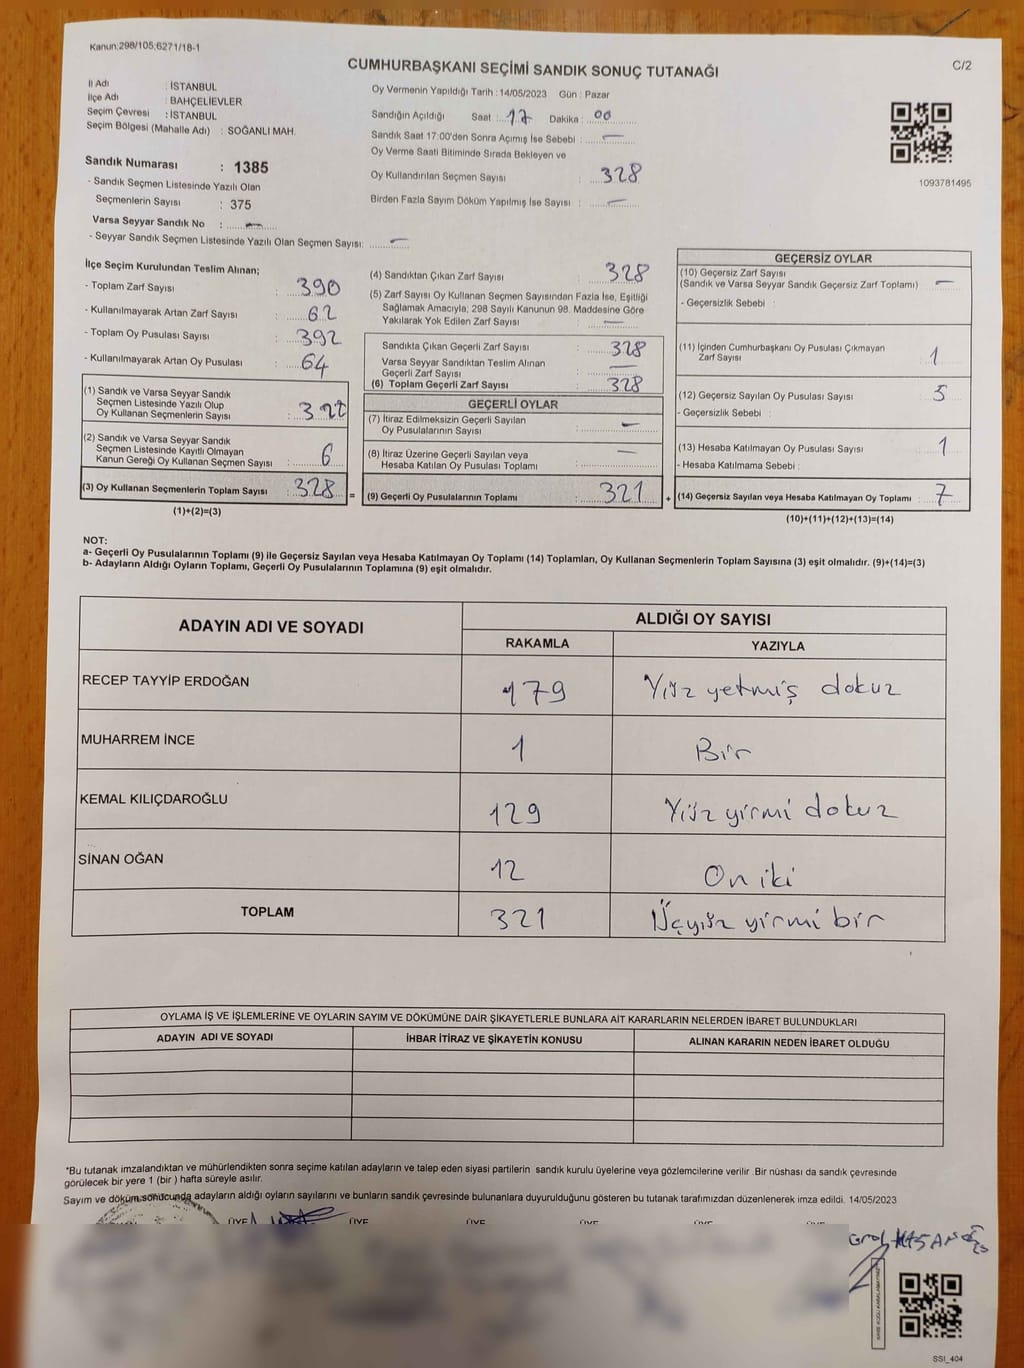 Kanun:298/105;6271/18-1
C/2
CUMHURBAŞKANI SEÇİMİ SANDIK SONUÇ TUTANAĞI
İl Adı : İSTANBUL
İlçe Adı : BAHÇELİEVLER
Seçim Çevresi : İSTANBUL
Seçim Bölgesi (Mahalle Adı) : SOĞANLI MAH.
Oy Vermenin Yapıldığı Tarih : 14/05/2023 Gün : Pazar
Sandığın Açıldığı Saat : 17 Dakika : 00
Sandık Saat 17:00'den Sonra Açımış İse Sebebi : —
Oy Verme Saati Bitiminde Sırada Bekleyen ve
Oy Kullandırılan Seçmen Sayısı : 328
Birden Fazla Sayım Döküm Yapılmış İse Sayısı : —
1093781495
Sandık Numarası : 1385
- Sandık Seçmen Listesinde Yazılı Olan
Seçmenlerin Sayısı : 375
Varsa Seyyar Sandık No : —
- Seyyar Sandık Seçmen Listesinde Yazılı Olan Seçmen Sayısı: —
İlçe Seçim Kurulundan Teslim Alınan;
- Toplam Zarf Sayısı : 390
- Kullanılmayarak Artan Zarf Sayısı : 62
- Toplam Oy Pusulası Sayısı : 392
- Kullanılmayarak Artan Oy Pusulası : 64
(1) Sandık ve Varsa Seyyar Sandık
Seçmen Listesinde Yazılı Olup
Oy Kullanan Seçmenlerin Sayısı : 322
(2) Sandık ve Varsa Seyyar Sandık
Seçmen Listesinde Kayıtlı Olmayan
Kanun Gereği Oy Kullanan Seçmen Sayısı : 6
(3) Oy Kullanan Seçmenlerin Toplam Sayısı : 328 =
(1)+(2)=(3)
(4) Sandıktan Çıkan Zarf Sayısı : 328
(5) Zarf Sayısı Oy Kullanan Seçmen Sayısından Fazla İse, Eşitliği
Sağlamak Amacıyla, 298 Sayılı Kanunun 98. Maddesine Göre
Yakılarak Yok Edilen Zarf Sayısı : —
Sandıkta Çıkan Geçerli Zarf Sayısı : 328
Varsa Seyyar Sandıktan Teslim Alınan
Geçerli Zarf Sayısı : —
(6) Toplam Geçerli Zarf Sayısı : 328
GEÇERLİ OYLAR
(7) İtiraz Edilmeksizin Geçerli Sayılan
Oy Pusulalarının Sayısı : —
(8) İtiraz Üzerine Geçerli Sayılan veya
Hesaba Katılan Oy Pusulası Toplamı : —
(9) Geçerli Oy Pusulalarının Toplamı : 321 +
GEÇERSİZ OYLAR
(10) Geçersiz Zarf Sayısı
(Sandık ve Varsa Seyyar Sandık Geçersiz Zarf Toplamı) : —
- Geçersizlik Sebebi :
(11) İçinden Cumhurbaşkanı Oy Pusulası Çıkmayan
Zarf Sayısı : 1
(12) Geçersiz Sayılan Oy Pusulası Sayısı : 5
- Geçersizlik Sebebi :
(13) Hesaba Katılmayan Oy Pusulası Sayısı : 1
- Hesaba Katılmama Sebebi :
(14) Geçersiz Sayılan veya Hesaba Katılmayan Oy Toplamı : 7
(10)+(11)+(12)+(13)=(14)
NOT:
a- Geçerli Oy Pusulalarının Toplamı (9) ile Geçersiz Sayılan veya Hesaba Katılmayan Oy Toplamı (14) Toplamları, Oy Kullanan Seçmenlerin Toplam Sayısına (3) eşit olmalıdır. (9)+(14)=(3)
b- Adayların Aldığı Oyların Toplamı, Geçerli Oy Pusulalarının Toplamına (9) eşit olmalıdır.
ADAYIN ADI VE SOYADI
ALDIĞI OY SAYISI
RAKAMLA YAZIYLA
RECEP TAYYİP ERDOĞAN 179 Yüz yetmiş dokuz
MUHARREM İNCE 1 Bir
KEMAL KILIÇDAROĞLU 129 Yüz yirmi dokuz
SİNAN OĞAN 12 On iki
TOPLAM 321 Üçyüz yirmi bir
OYLAMA İŞ VE İŞLEMLERİNE VE OYLARIN SAYIM VE DÖKÜMÜNE DAİR ŞİKAYETLERLE BUNLARA AİT KARARLARIN NELERDEN İBARET BULUNDUKLARI
ADAYIN ADI VE SOYADI İHBAR İTİRAZ VE ŞİKAYETİN KONUSU ALINAN KARARIN NEDEN İBARET OLDUĞU
*Bu tutanak imzalandıktan ve mühürlendikten sonra seçime katılan adayların ve talep eden siyasi partilerin sandık kurulu üyelerine veya gözlemcilerine verilir .Bir nüshası da sandık çevresinde
görülecek bir yere 1 (bir ) hafta süreyle asılır.
Sayım ve döküm sonucunda adayların aldığı oyların sayılarını ve bunların sandık çevresinde bulunanlara duyurulduğunu gösteren bu tutanak tarafımızdan düzenlenerek imza edildi. 14/05/2023
ÜYE ÜYE ÜYE ÜYE ÜYE ÜYE
SSİ_404